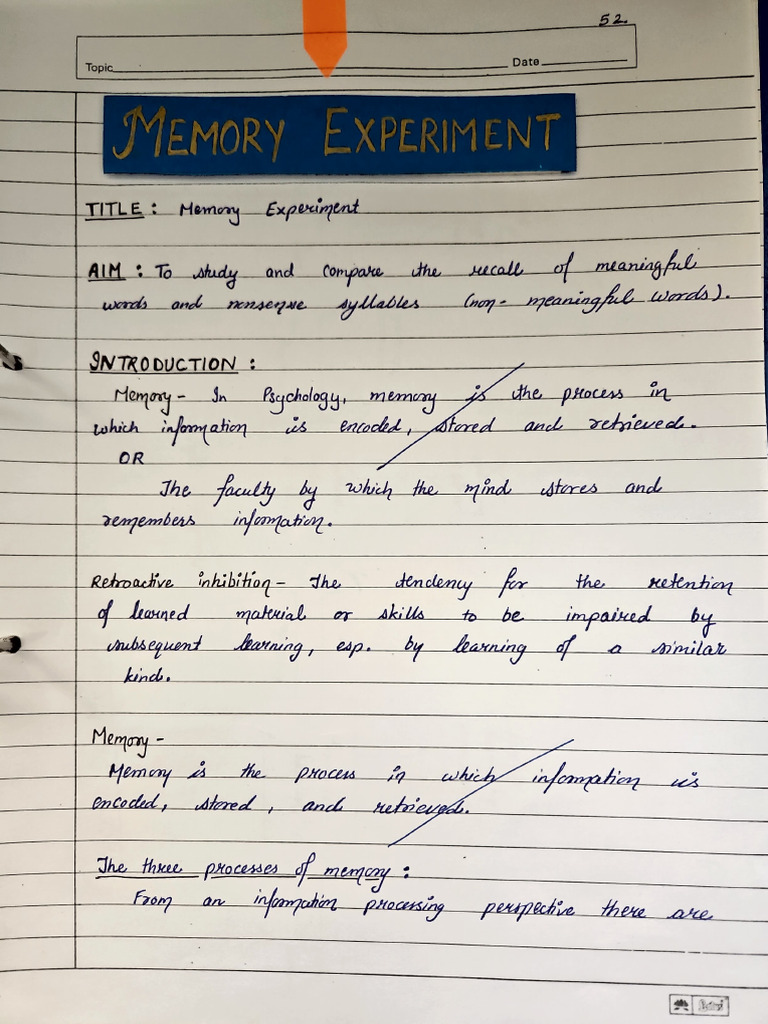 52
Topic Date
MEMORY EXPERIMENT
TITLE : Memory Experiment
AIM : To study and compare the recall of meaningful
words and nonsense syllables (non- meaningful words).
INTRODUCTION :
Memory - In Psychology, memory is the process in
which information is encoded, stored and retrieved.
OR
The faculty by which the mind stores and
remembers information.
Retroactive inhibition - The tendency for the retention
of learned material or skills to be impaired by
subsequent learning, esp. by learning of a similar
kind.
Memory -
Memory is the process in which information is
encoded, stored, and retrieved.
The three processes of memory :
From an information processing perspective there are